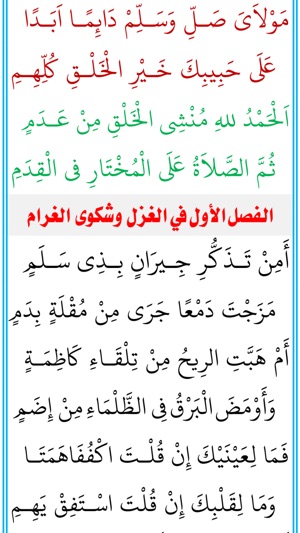 مَوْلَايَ صَلِّ وَسَلِّمْ دَائِمًا أَبَدًا
عَلَى حَبِيبِكَ خَيْرِ الْخَلْقِ كُلِّهِمِ
اَلْحَمْدُ للهِ مُنْشِي الْخَلْقِ مِنْ عَدَمٍ
ثُمَّ الصَّلَاةُ عَلَى الْمُخْتَارِ فِي الْقِدَمِ
الفصل الأول في الغزل وشكوى الغرام
أَمِنْ تَذَكُّرِ جِيرَانٍ بِذِي سَلَمٍ
مَزَجْتَ دَمْعًا جَرَى مِنْ مُقْلَةٍ بِدَمٍ
أَمْ هَبَّتِ الرِيحُ مِنْ تِلْقَاءِ كَاظِمَةٍ
وَأَوْمَضَ الْبَرْقُ فِي الظَّلْمَاءِ مِنْ إِضَمٍ
فَمَا لِعَيْنَيْكَ إِنْ قُلْتَ اكْفُفَا هَمَتَا
وَمَا لِقَلْبِكَ إِنْ قُلْتَ اسْتَفِقْ يَهِمِ